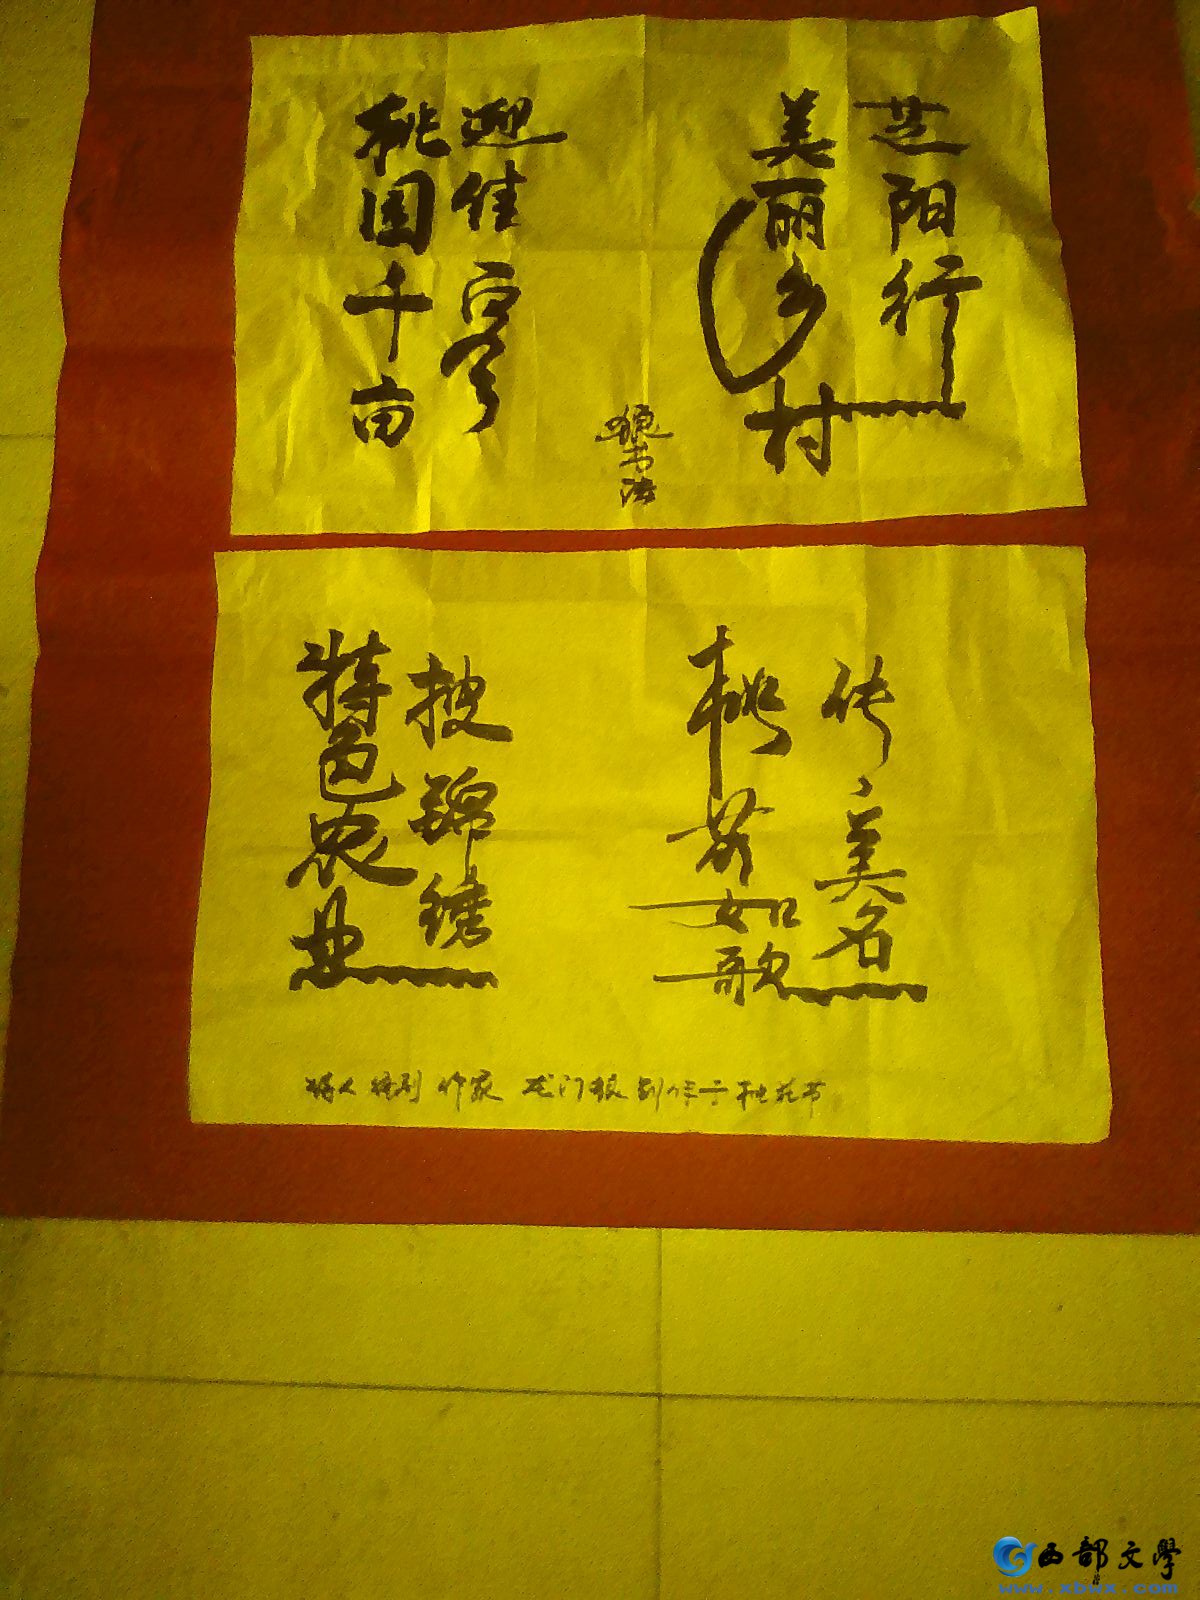 芝阳行
美丽乡村
迎佳宾
桃园千亩
狼书法
传美名
桃花如歌
披锦绣
特色农业
诗人 编剧 作家 龙门狼 创作于桃花节
西部文學
www.xbwx.com